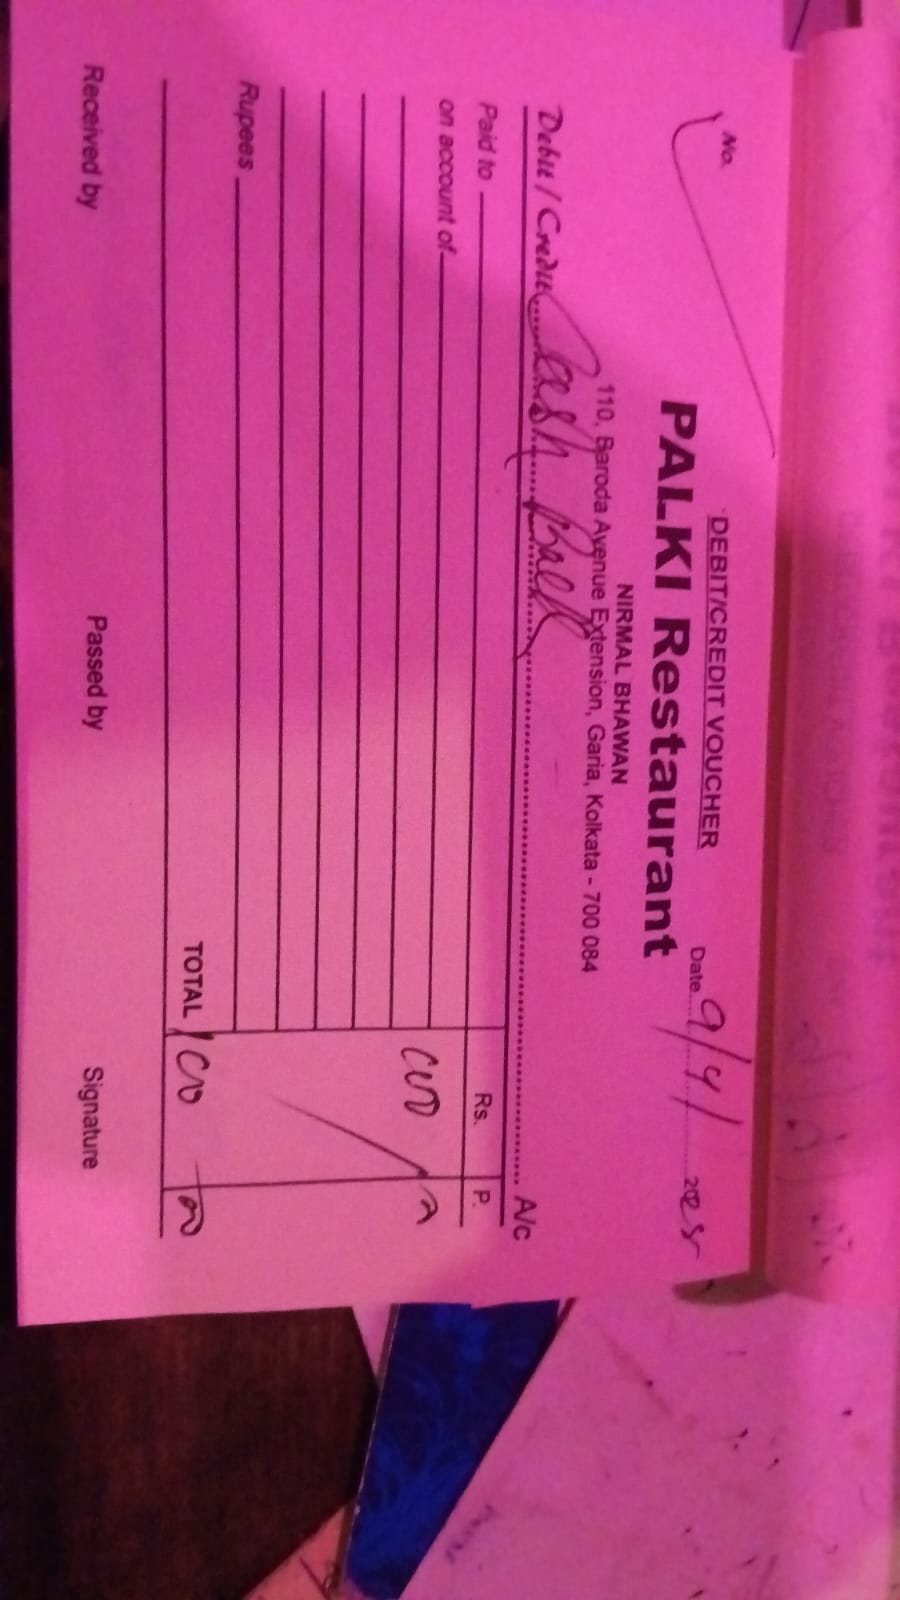 DEBIT/CREDIT VOUCHER
No.
Date 9/4/
PALKI Restaurant
NIRMAL BHAWAN
110, Baroda Avenue Extension, Garia, Kolkata - 700 084
Debit / Credit Cash A/c
Paid to Rs. P.
on account of
Rupees
TOTAL
Received by Passed by Signature